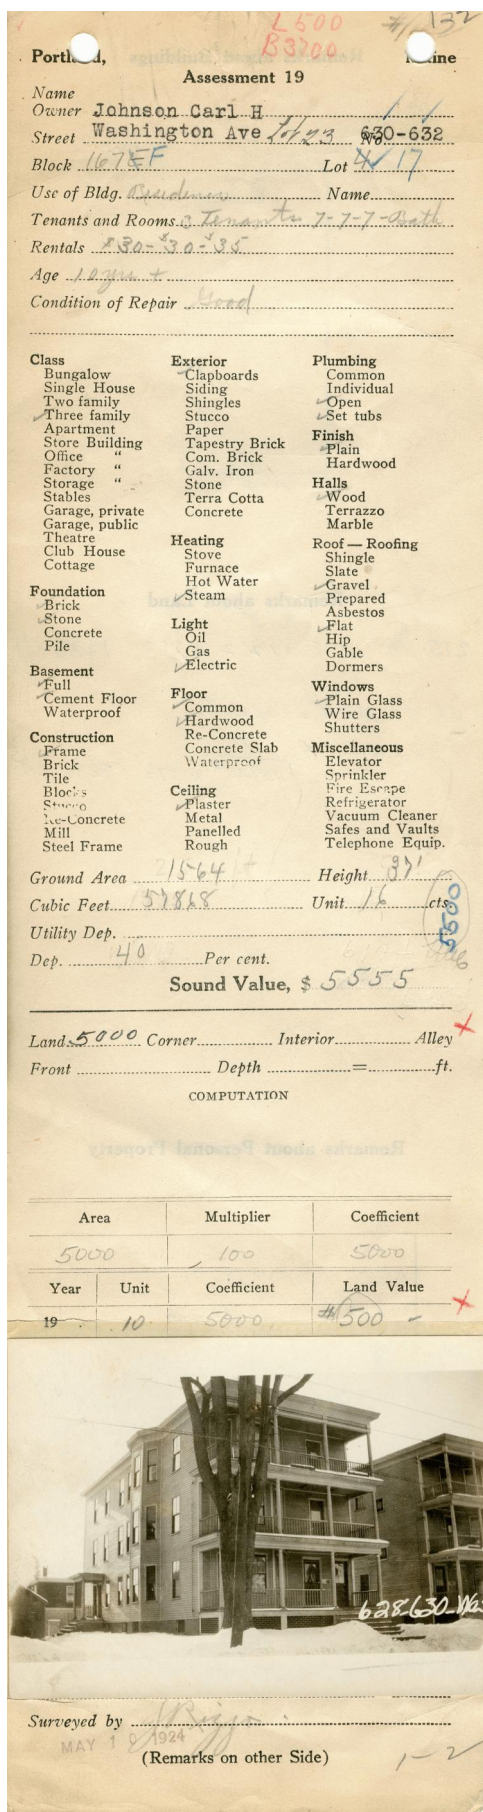 L 500
B 3700
132
Portland, Maine
Assessment 19
Name
Owner Johnson Carl H
Street Washington Ave Lot 23 No. 630-632
Block 167 EF Lot 17
Use of Bldg. Residence Name
Tenants and Rooms 3 Tenants 7-7-7-Bath
Rentals $30-$30-$35
Age 10 yrs +
Condition of Repair Good
Class
Bungalow
Single House
Two family
Three family
Apartment
Store Building
Office "
Factory "
Storage "
Stables
Garage, private
Garage, public
Theatre
Club House
Cottage
Foundation
Brick
Stone
Concrete
Pile
Basement
Full
Cement Floor
Waterproof
Construction
Frame
Brick
Tile
Blocks
Stucco
Re-Concrete
Mill
Steel Frame
Exterior
Clapboards
Siding
Shingles
Stucco
Paper
Tapestry Brick
Com. Brick
Galv. Iron
Stone
Terra Cotta
Concrete
Heating
Stove
Furnace
Hot Water
Steam
Light
Oil
Gas
Electric
Floor
Common
Hardwood
Re-Concrete
Concrete Slab
Waterproof
Ceiling
Plaster
Metal
Panelled
Rough
Plumbing
Common
Individual
Open
Set tubs
Finish
Plain
Hardwood
Halls
Wood
Terrazzo
Marble
Roof — Roofing
Shingle
Slate
Gravel
Prepared
Asbestos
Flat
Hip
Gable
Dormers
Windows
Plain Glass
Wire Glass
Shutters
Miscellaneous
Elevator
Sprinkler
Fire Escape
Refrigerator
Vacuum Cleaner
Safes and Vaults
Telephone Equip.
Ground Area 1564 Height 37'
Cubic Feet 57868 Unit 16 cts.
5500
Utility Dep.
Dep. 40 Per cent.
Sound Value, $ 5555
Land 5000 Corner Interior Alley
Front Depth = ft.
COMPUTATION
Area Multiplier Coefficient
5000 100 5000
Year Unit Coefficient Land Value
19 .10 5000 $500 -
628-630-Was
Surveyed by
MAY 1 1924
(Remarks on other Side)
1-2